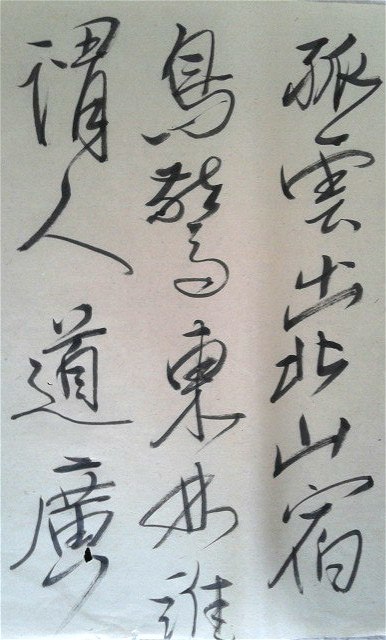 孤雲出北山宿
鳥驚東林誰
謂人道廣